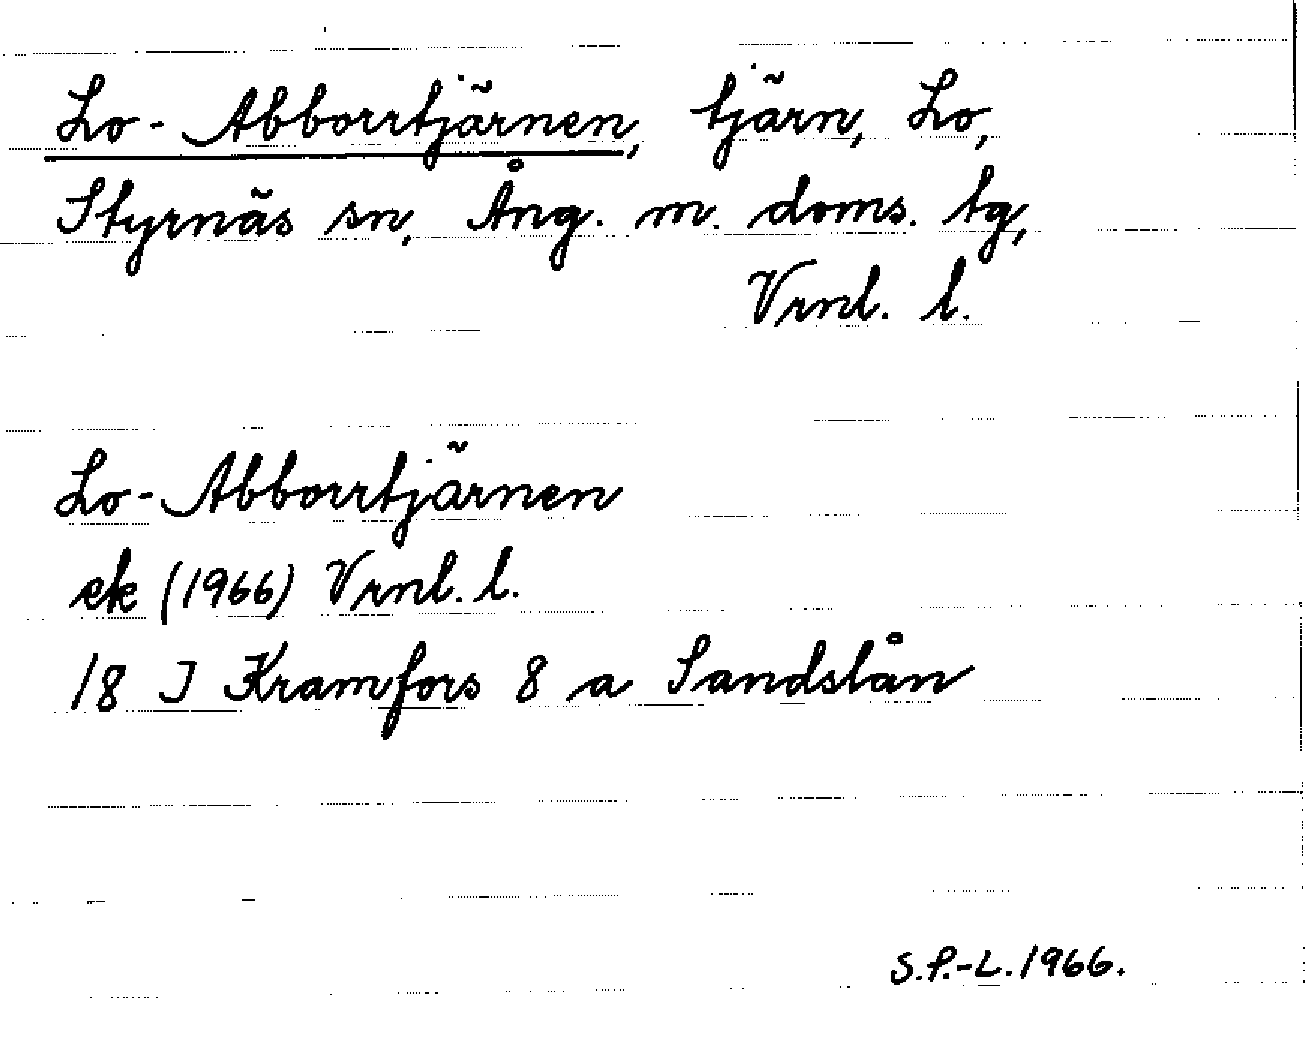 Lo-Abborrtjärnen, tjärn, Lo,
Styrnäs sn, Ång. m. doms. tg,
Vrnl. l.
Lo-Abborrtjärnen
ek (1966) Vrnl. l.
18 J Kramfors 8 a Sandslån
S.P.-L. 1966.